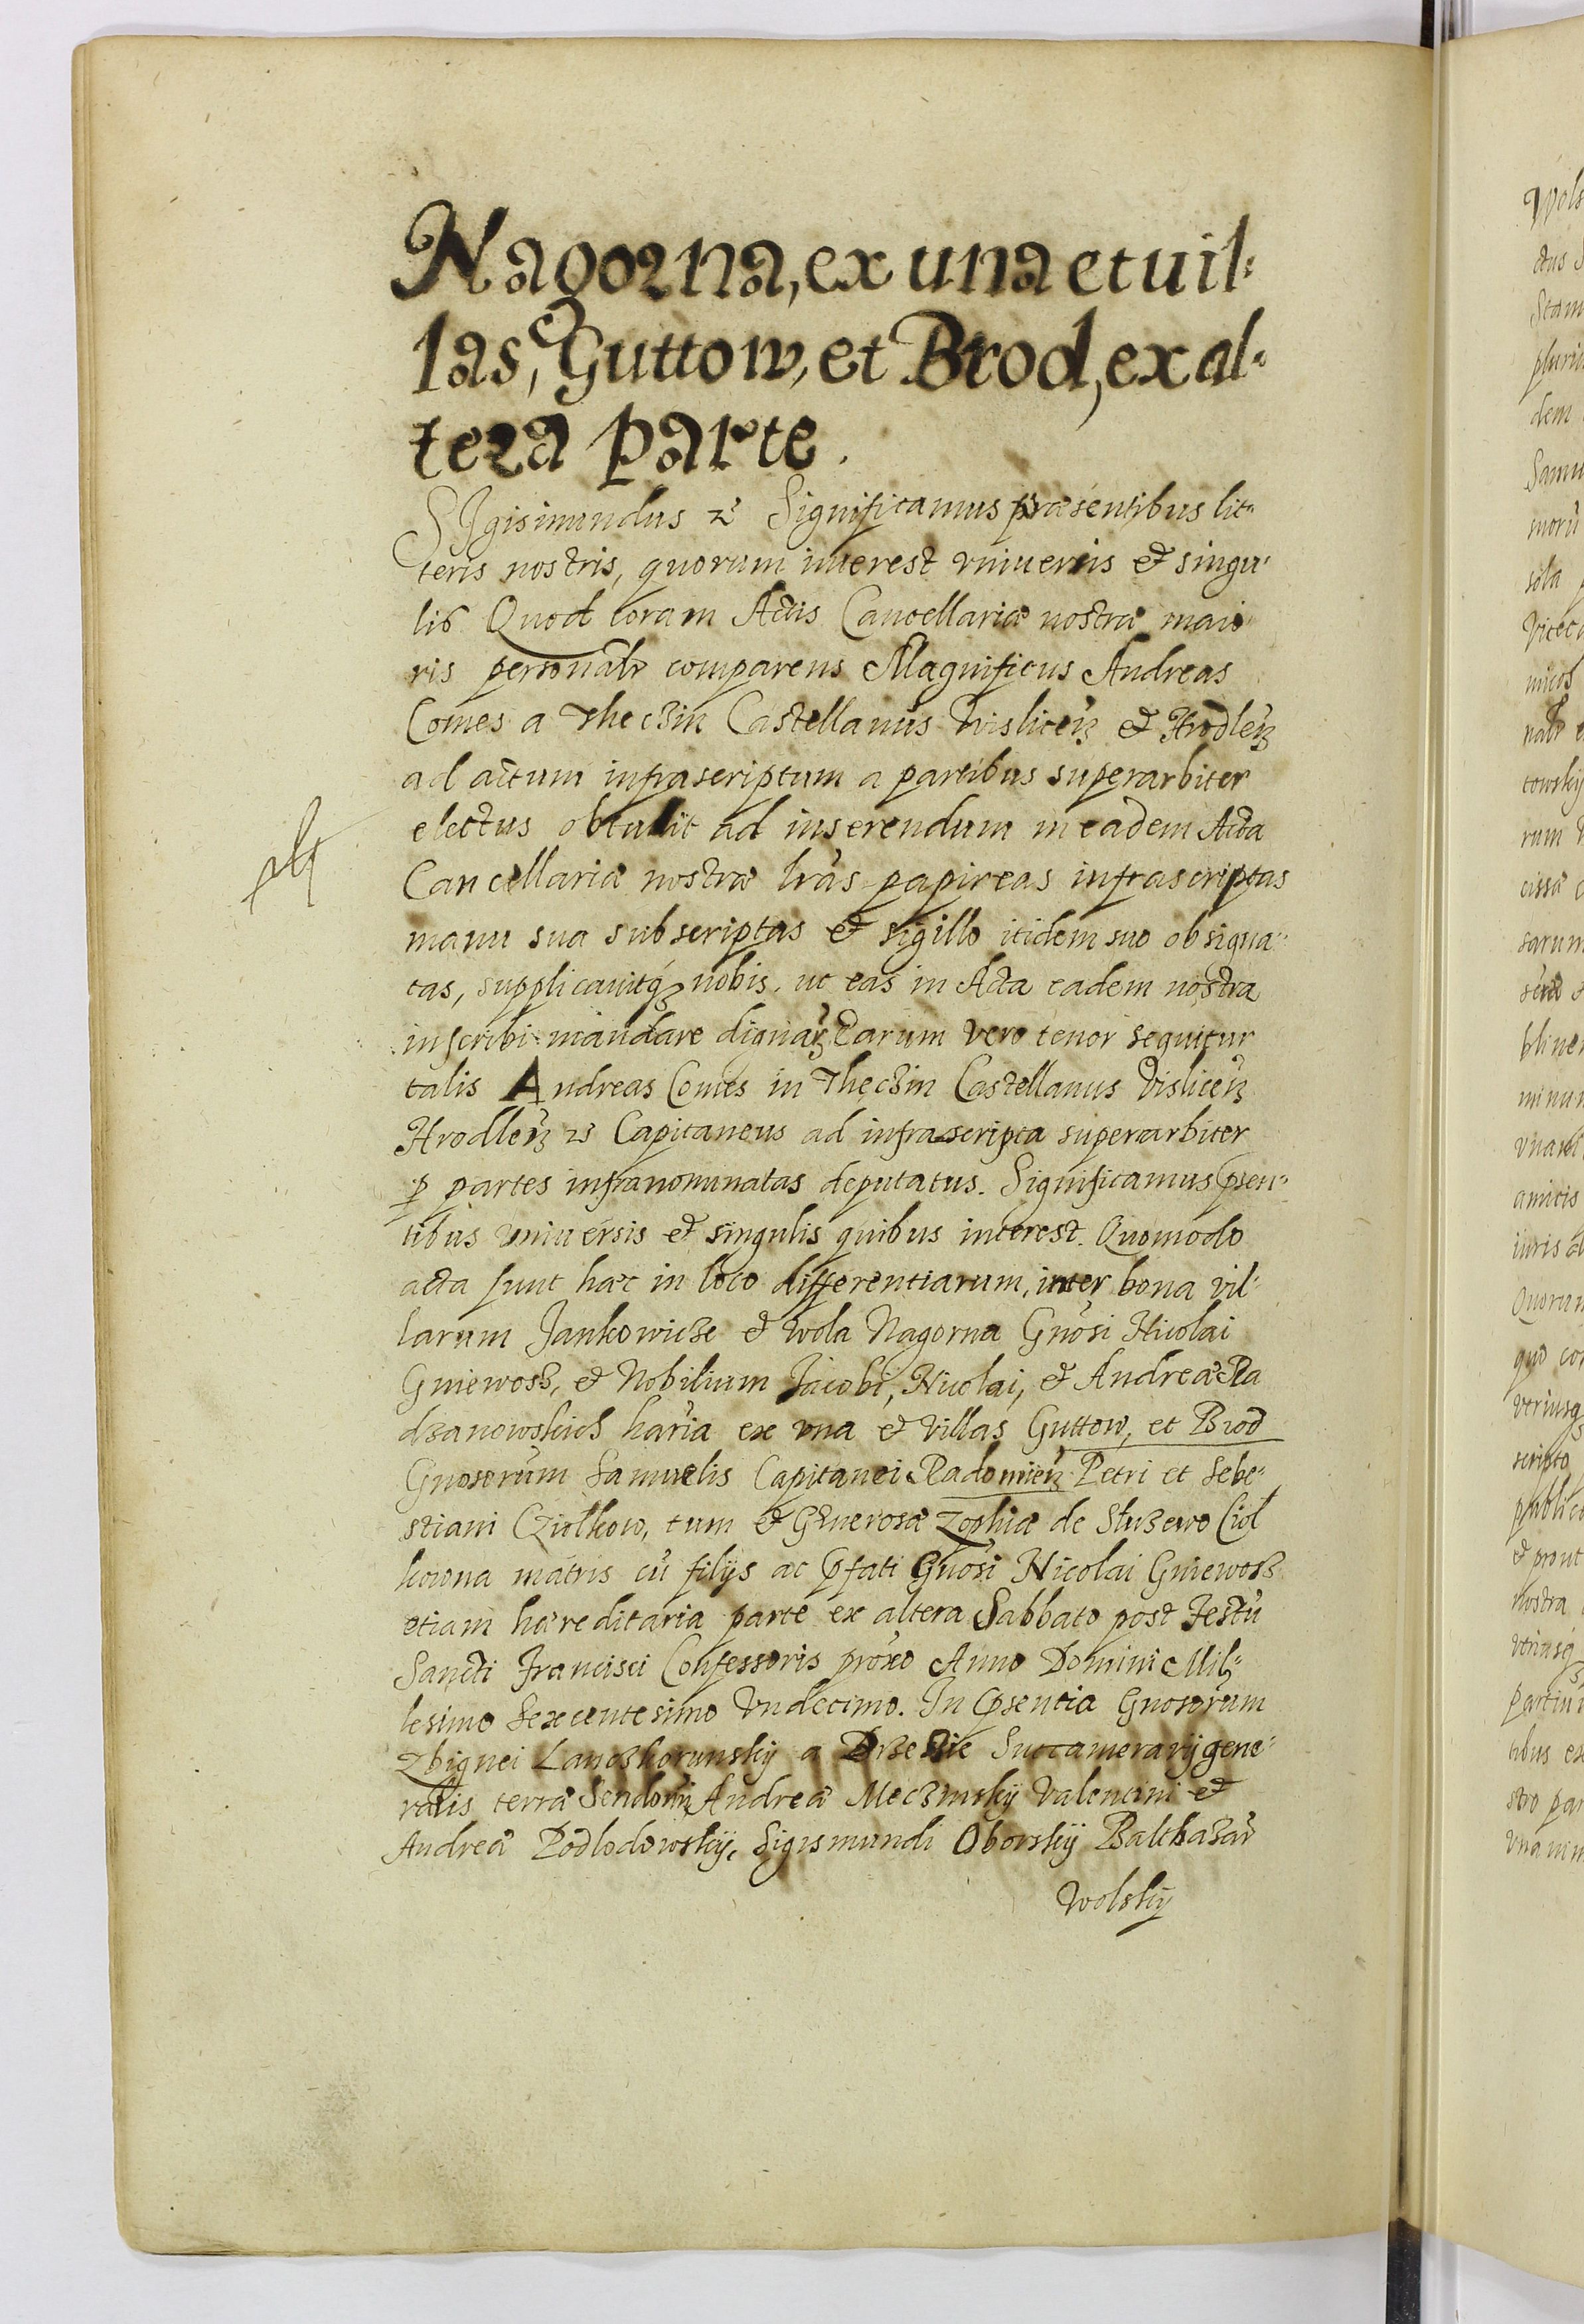 Nagorna, ex una et uil⸗
las, Guttow, et Brod, ex al⸗
tera parte.
SIgismundus ꝛc̃ Significamus præsentibus lit⸗
teris nostris, quorum interest vniuersis et singu⸗
lis Quod coram Actis Cancellariæ nostræ maio
ris personalr̃ comparens Magnificus Andreas
Comes a Theczin Castellanus Wislicen̄ et Hrodlen̄
ad actum infrascriptum a partibus superarbiter
electus obtulit ad inserendum in eadem Acta
Cancellariæ nostræ lr̃as papireas infrascriptas
manu sua subscriptas et sigillo itidem suo obsigna⸗
tas, supplicauitqꝫ nobis, ut eas in Acta eadem nostra
inscribi mandare dignar̃ Earum vero tenor sequitur
talis Andreas Comes in Theczin Castellanus Vislicen̄
Hrodlen̄ ꝛc̃ Capitaneus ad infrascripta superarbiter
ꝑ partes infranominatas deputatus. Significamus p̃sen⸗
tibus vniuersis et singulis quibus interest. Quomodo
acta sunt hæc in loco differentiarum, inter bona vil⸗
larum Jankowicze et Wola Nagorna Gn̄osi Nicolai
Gniewosz, et Nobilium Jacobi, Nicolai, et Andreæ Ra
dzanowskich hæria ex vna et villas Guttow, et Brod
Gnosorum Samuelis Capitanei Radomien̄ Petri et Sebe⸗
stiani Cziolkow, tum et Generosæ Zophiæ de Sluzewo Ciol
kowna matris cū filijs ac p̃fati Gn̄osi Nicolai Gniewosz
etiam hæreditaria parte ex altera Sabbato post Festū
Sancti Francisci Confessoris prox̄o Anno Domini Mil⸗
lesimo Sexcentesimo Vndecimo. In p̃sentia Gnosorum
Zbignei Lanczkorunskij a Brzezie Succamerarij gene⸗
ralis terræ Sendomir̃ Andreæ Meczinskij Valentini et
Andreæ Podlodowskij, Sigismundi Oborskij Balthazar̃
Wolskij